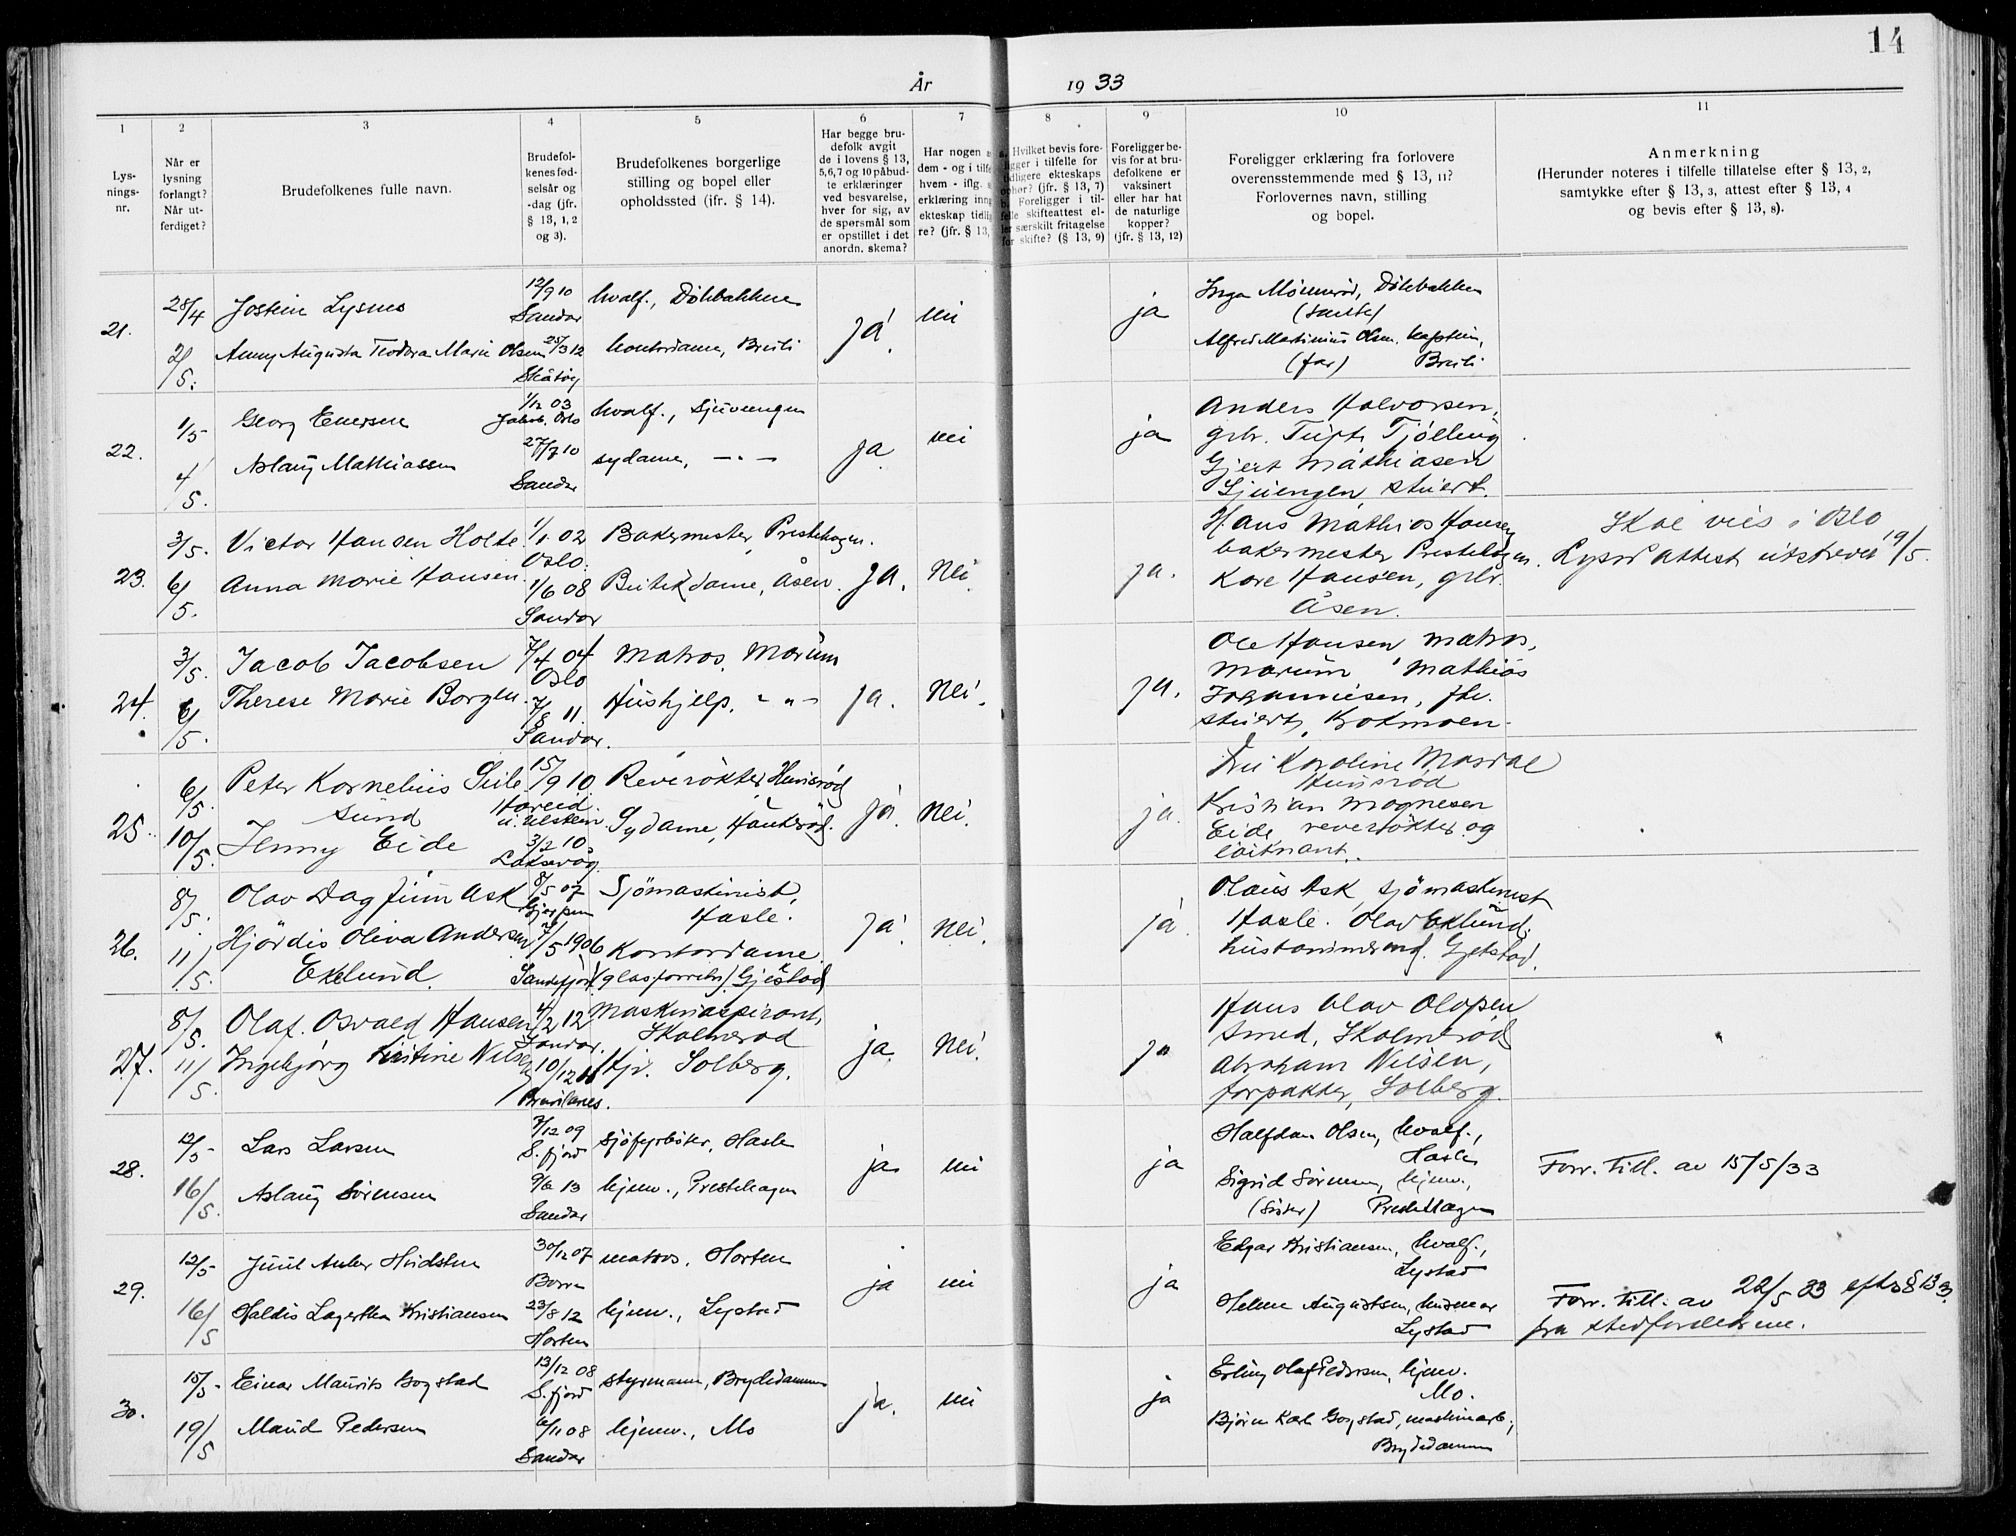 14
År 1933
1 2 3 4 5 6 7 8 9 10 11
Lys-
nings-
nr.
Når er
lysning
forlangt?
Når ut-
ferdiget?
Brudefolkenes fulle navn.
Brudefol-
kenes fød-
selsår og
-dag (jfr.
§ 13, 1, 2
og 3).
Brudefolkenes borgerlige
stilling og bopel eller
opholdssted (jfr. § 14).
Har begge bru-
defolk avgit
de i lovens § 13,
5, 6, 7 og 10 påbud-
te erklæringer
ved besvarelse,
hver for sig, av
de spørsmål som
er opstillet i det
anordn. skema?
Har nogen
dem - og i tilf
hvem - iflg.
erklæring inng
ekteskap tidlig
re? (jfr. § 13,
Hvilket bevis fore-
ligger i tilfelle for
tidligere ekteskaps
ophør? (jfr. § 13, 7)
Foreligger i til-
felle skifteattest el-
ler særskilt fritagelse
for skifte? (§ 13, 9)
Foreligger be-
vis for at bru-
defolkene er
vaksinert
eller har hat
de naturlige
kopper?
(jfr. § 13, 12)
Foreligger erklæring fra forlovere
overensstemmende med § 13, 11?
Forlovernes navn, stilling
og bopel.
Anmerkning
(Herunder noteres i tilfelle tillatelse efter § 13, 2,
samtykke efter § 13, 3, attest efter § 13, 4
og bevis efter § 13, 8).
21. 28/4 Jostein Lysnes 12/9 10 Sandar hvalf., Dölebakken
2/5. Anny Augusta Teodora Marie Olsen 25/3 12 Skåtøy kontordame, Breili
ja nei ja
Inga Mönnerød, Dölebakken
(tante)
Alfred Martinius Olsen, kaptein,
(far) Breili
22. 1/5 Georg Enersen 1/12 03 Jakob, Oslo hvalf.,
4/5. Aslaug Mathiassen 27/7 10 Sandar sydame, — " —
ja nei ja
Anders Halvorsen,
grbr. Tjølling
Gjert Mathiasen
stuert.
23. 3/5. Victor Hansen Holte 1/1 02 Oslo. Bakermester, Prestehagen.
6/5. Anna Marie Hansen. 1/6 08 Sandar Butikkdame, Åsen.
Ja. Nei. ja.
Hans Mathias Hansen
bakermester Prestehagen.
Kare Hansen, grbr.
Åsen.
Skal vies i Oslo
Lysn attest utstrevet 19/5.
24. 3/5. Jacob Jacobsen 7/4 04 Oslo Matros, Marum
6/5. Therese Marie Borgen. 7/8 11. Sandar. Hushjelp. - " -
ja. Nei. ja.
Ole Hansen matros,
Marum Mathias
Johannesen, fhv.
stuert, Krokmoen
25. 6/5. Peter Kornelius Seile- 15/9 10. Hareid i. Ulstein Reverøkter, Hunsrød
sund
10/5. Jenny Eide 3/2 10 Laksevåg. Sydame, Haukerød.
ja. Nei. ja.
Fru Karoline Mardal
Hunsrød
Kristian Magnesen
Eide, reverøkter og
løitnant.
26. 8/5. Olav Dagfinn Ask 8/5 07 Gjerpen Sjömaskinist,
Hasle.
11/5. Hjördis Oliva Andersen 7/5 1906 Sandefjord Kontordame.
Eklund. (glasforretn) Gjekstad
Ja. Nei. ja.
Olaus Ask, sjömaskinist
Hasle. Olav Eklund,
kustonnemnd. Gjekstad.
27. 8/5. Olaf. Osvald Hansen 4/2 12 Sandar. Maskinaspirant,
Skolmerød
11/5. Ingebjørg Kristine Nilsen 10/12 11 Brunlanes. Hjv. Solberg.
ja. Nei. ja
Hans Olav Olafsen
smed, Skolmerød
Abraham Nilsen,
forpakter, Solberg.
28. 12/5- Lars Larsen 7/12 09 S. fjord sjöfyrböter, Hasle
16/5. Aslaug Sörensen 9/6 13 Sandar hjemv., Prestehagen
ja nei ja
Halfdan Olsen, hvalf.,
Hasle
Sigrid Sörensen, hjemv.,
(söster) Prestehagen
Forr. till. av 15/5/33
29. 12/5- Juul Anker Hvidsten 30/12 07 Borre matros, Horten
16/5 Haldis Lagertha Kristiansen 23/8 12 Horten hjemv., Lystad
ja nei ja
Edgar Kristiansen, hvalf.,
Lystad
Helene Augustsen, husmor
Lystad
Forr. till. av 22/5 33 efter § 13 3.
fra stedforeldrene.
30. 15/5- Einar Maurits Gogstad 13/12 08 S. fjord styrmann, Brydedammen
19/5 Maud Pedersen 6/11 08 Sandar hjemv., Mo
ja. nei ja
Erling Olaf Pedersen, hjemv.
Mo.
Björn Karl Gogstad, maskinarb.,
Brydedammen